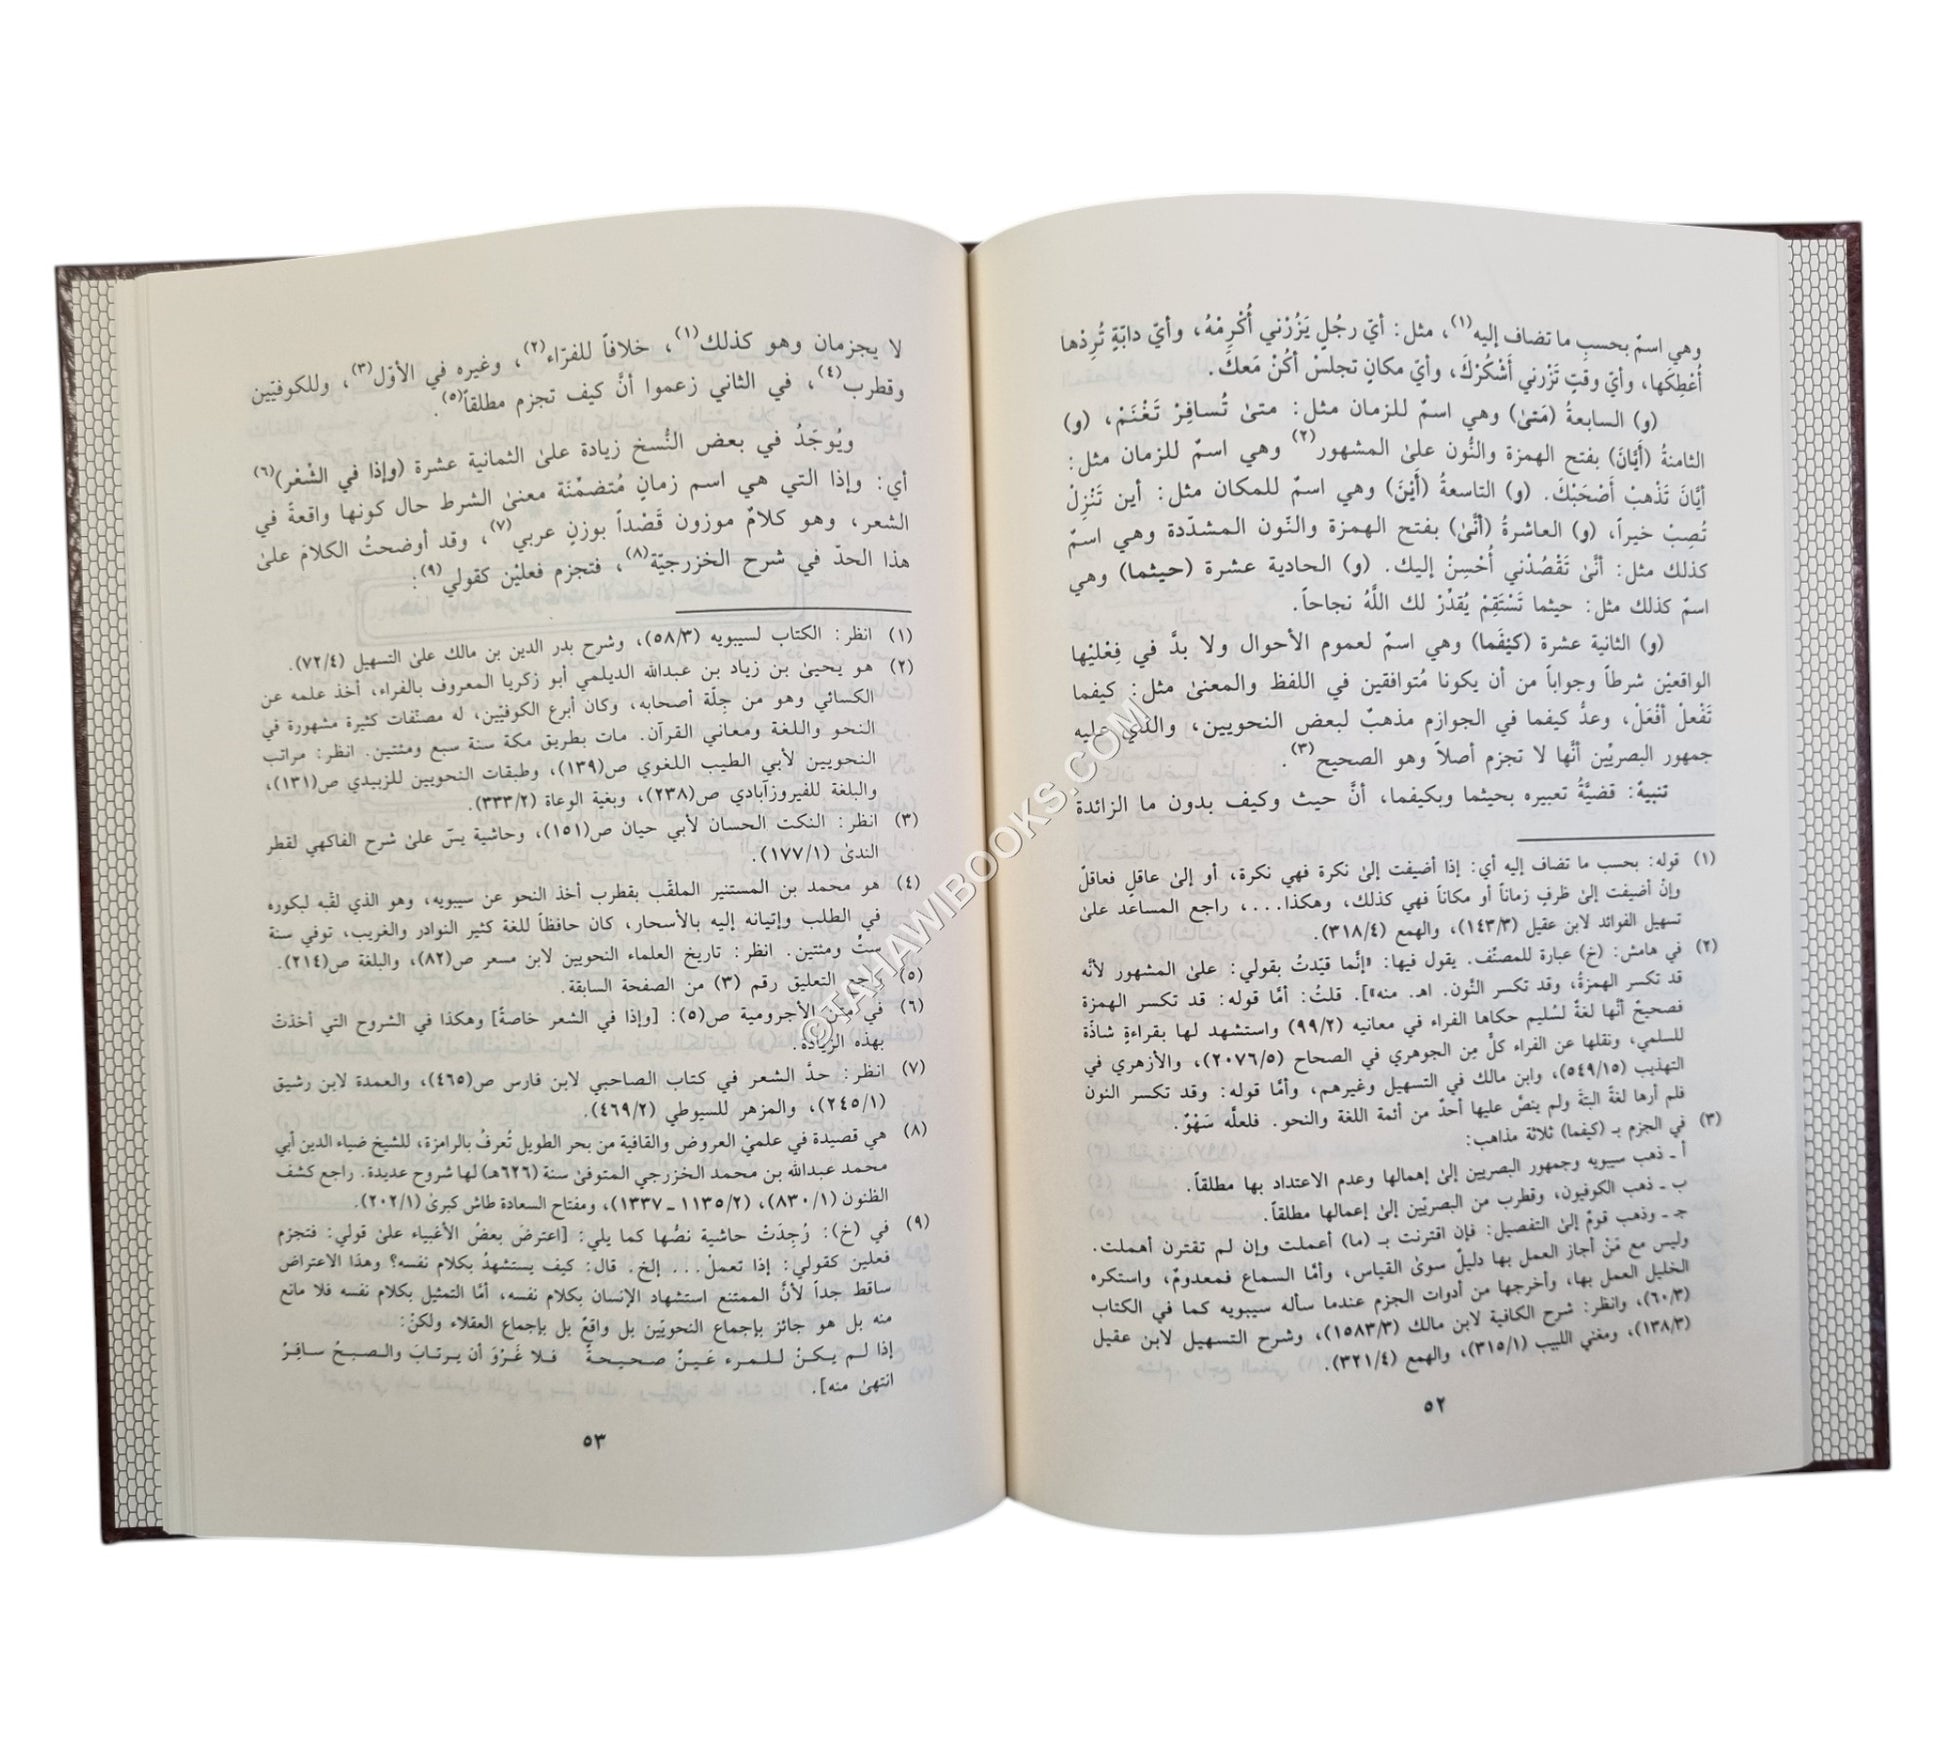 وهي اسمٌ بحسبِ ما تضاف إليه(١)، مثل: أيّ رجُلٍ يَزُرْني أُكْرِمْهُ، وأيّ دابّةٍ تُرِدْها
أُعْطِكَها، وأيّ وقتٍ تَزْرني أَشْكُرْكَ، وأيّ مكانٍ تجلسْ أكُنْ مَعكَ.
(و) السابعةُ (مَتىٰ) وهي اسمٌ للزمان مثل: متىٰ تُسافِرْ تَغْنَمْ، (و)
الثامنةُ (أَيَّانَ) بفتح الهمزة والنُّون علىٰ المشهور(٢) وهي اسمٌ للزمان مثل:
أيَّانَ تَذْهبْ أَصْحَبْكَ. (و) التاسعةُ (أَيْنَ) وهي اسمٌ للمكان مثل: أين تَنْزِلْ
تُصِبْ خيراً، (و) العاشرةُ (أَنَّىٰ) بفتح الهمزة والنّون المشدّدة وهي اسمٌ
كذلك مثل: أنَّىٰ تَقْصُدْني أُحْسِنْ إليك. (و) الحادية عشرة (حيثما) وهي
اسمٌ كذلك مثل: حيثما تَسْتَقِمْ يُقدْرْ لك اللَّهُ نجاحاً.
(و) الثانية عشرة (كَيْفَما) وهي اسمٌ لعموم الأحوال ولا بدَّ في فِعْليْها
الواقعيْن شرطاً وجواباً من أن يكونا مُتوافقين في اللفظ والمعنىٰ مثل: كيفما
تَفْعلْ أفْعَلْ، وعدُّ كيفما في الجوازم مذهبٌ لبعض النحويين، والذي عليه
جمهور البصريْين أنَّها لا تجزم أصلاً وهو الصحيح(٣).
تنبيهٌ: قضيَّةُ تعبيره بحيثما وبكيفما، أنَّ حيث وكيف بدون ما الزائدة
(١) قوله: بحسب ما تضاف إليه أي: إذا أضيفت إلىٰ نكرة فهي نكرة، أو إلىٰ عاقلٍ فعاقلٌ
وإنْ أضيفت إلىٰ ظرفٍ زماناً أو مكاناً فهي كذلك، وهكذا...، راجع المساعد علىٰ
تسهيل الفوائد لابن عقيل (١٤٣/٣)، والهمع (٣١٨/٤).
(٢) في هامش: (خ) عبارة للمصنّف. يقول فيها: «إنَّما قيّدتُ بقولي: علىٰ المشهور لأنَّه
قد تكسر الهمزةُ، وقد تكسر النُّون. اهـ. منه»]. قلتُ: أمَّا قوله: قد تكسر الهمزة
فصحيحٌ أنَّها لغةٌ لسُليم حكاها الفراء في معانيه (٩٩/٢) واستشهد لها بقراءةٍ شاذّة
للسلمي، ونقلها عن الفراء كلٌّ مِن الجوهري في الصحاح (٢٠٧٦/٥)، والأزهري في
التهذيب (٥٤٩/١٥)، وابن مالك في التسهيل وغيرهم، وأمَّا قوله: وقد تكسر النون
فلم أرها لغةً البتةَ ولم ينصَّ عليها أحدٌ من أئمة اللغة والنحو. فلعلَّه سَهْوٌ.
(٣) في الجزم بـ (كيفما) ثلاثة مذاهب:
أ ـ ذهب سيبويه وجمهور البصريين إلىٰ إهمالها وعدم الاعتداد بها مطلقاً.
ب ـ ذهب الكوفيون، وقطرب من البصريّين إلىٰ إعمالها مطلقاً.
جـ ـ وذهب قومٌ إلىٰ التفصيل: فإن اقترنت بـ (ما) أعملت وإن لم تقترن أهملت.
وليس مع مَنْ أجاز العمل بها دليلٌ سوىٰ القياس، وأمَّا السماع فمعدومٌ، واستكره
الخليل العمل بها، وأخرجها من أدوات الجزم عندما سأله سيبويه كما في الكتاب
(٦٠/٣)، وانظر: شرح الكافية لابن مالك (١٥٨٣/٣)، وشرح التسهيل لابن عقيل
(١٣٨/٣)، ومغني اللبيب (٣١٥/١)، والهمع (٣٢١/٤).
٥٢
لا يجزمان وهو كذلك(١)، خلافاً للفرّاء(٢)، وغيره في الأوّل(٣)، وللكوفيّين
وقطرب(٤)، في الثاني زعموا أنَّ كيف تجزم مطلقاً(٥).
ويُوجَدُ في بعض النُّسخ زيادة علىٰ الثمانية عشرة (وإذا في الشْعْر)(٦)
أي: وإذا التي هي اسم زمانٍ مُتضمِّنَة معنىٰ الشرط حال كونها واقعةً في
الشعر، وهو كلامٌ موزون قَصْداً بوزنٍ عربي(٧)، وقد أوضحتُ الكلامَ علىٰ
هذا الحدّ في شرح الخزرجيّة(٨)، فتجزم فعليْن كقولي(٩):
(١) انظر: الكتاب لسيبويه (٥٨/٣)، وشرح بدر الدين بن مالك علىٰ التسهيل (٧٢/٤).
(٢) هو يحيىٰ بن زياد بن عبدالله الديلمي أبو زكريا المعروف بالفراء، أخذ علمه عن
الكسائي وهو من جِلّة أصحابه، وكان أبرع الكوفيّين، له مصنّفات كثيرة مشهورة في
النحو واللغة ومعاني القرآن. مات بطريق مكة سنة سبع ومئتين. انظر: مراتب
النحويين لأبي الطيب اللغوي ص(١٣٩)، وطبقات النحويين للزبيدي ص(١٣١)،
والبلغة للفيروزآبادي ص(٢٣٨)، وبغية الوعاة (٣٣٣/٢).
(٣) انظر: النكت الحسان لأبي حيان ص(١٥١)، وحاشية يسّ علىٰ شرح الفاكهي لقطر
الندىٰ (١٧٧/١).
(٤) هو محمد بن المستنير الملقّب بقطرب أخذ النحو عن سيبويه، وهو الذي لقّبه لبكوره
في الطلب وإتيانه إليه بالأسحار، كان حافظاً للغة كثير النوادر والغريب، توفي سنة
ستٍّ ومئتين. انظر: تاريخ العلماء النحويين لابن مسعر ص(٨٢)، والبلغة ص(٢١٤).
(٥) راجع التعليق رقم (٣) من الصفحة السابقة.
(٦) في متن الأجرومية ص(٥): [وإذا في الشعر خاصةً] وهكذا في الشروح التي أخذتْ
بهذه الزيادة.
(٧) انظر: حدَّ الشعر في كتاب الصاحبي لابن فارس ص(٤٦٥)، والعمدة لابن رشيق
(٢٤٥/١)، والمزهر للسيوطي (٤٦٩/٢).
(٨) هي قصيدة في علميْ العروض والقافية من بحر الطويل تُعرفُ بالرامزة، للشيخ ضياء الدين أبي
محمد عبدالله بن محمد الخزرجي المتوفىٰ سنة (٦٢٦هـ) لها شروح عديدة. راجع كشف
الظنون (٨٣٠/١)، (١١٣٥/٢ ـ ١٣٣٧)، ومفتاح السعادة طاش كبرىٰ (٢٠٢/١).
(٩) في (خ): وُجِدَتْ حاشية نصُّها كما يلي: [اعترضَ بعضُ الأغبياء علىٰ قولي: فتجزم
فعلين كقولي: إذا تعملْ... إلخ. قال: كيف يستشهدُ بكلام نفسه؟ وهذا الاعتراض
ساقط جداً لأنَّ الممتنع استشهاد الإنسان بكلام نفسه، أمَّا التمثيل بكلام نفسه فلا مانع
منه بل هو جائز بإجماع النحويّين بل واقعٌ بل بإجماع العقلاء ولكنْ:
إذا لم يكنْ للمرء عَينٌ صحيحةٌ فلا غَرْوَ أن يرتابَ والصبحُ سافِرُ
انتهىٰ منه].
٥٣
©TAHAWIBOOKS.COM